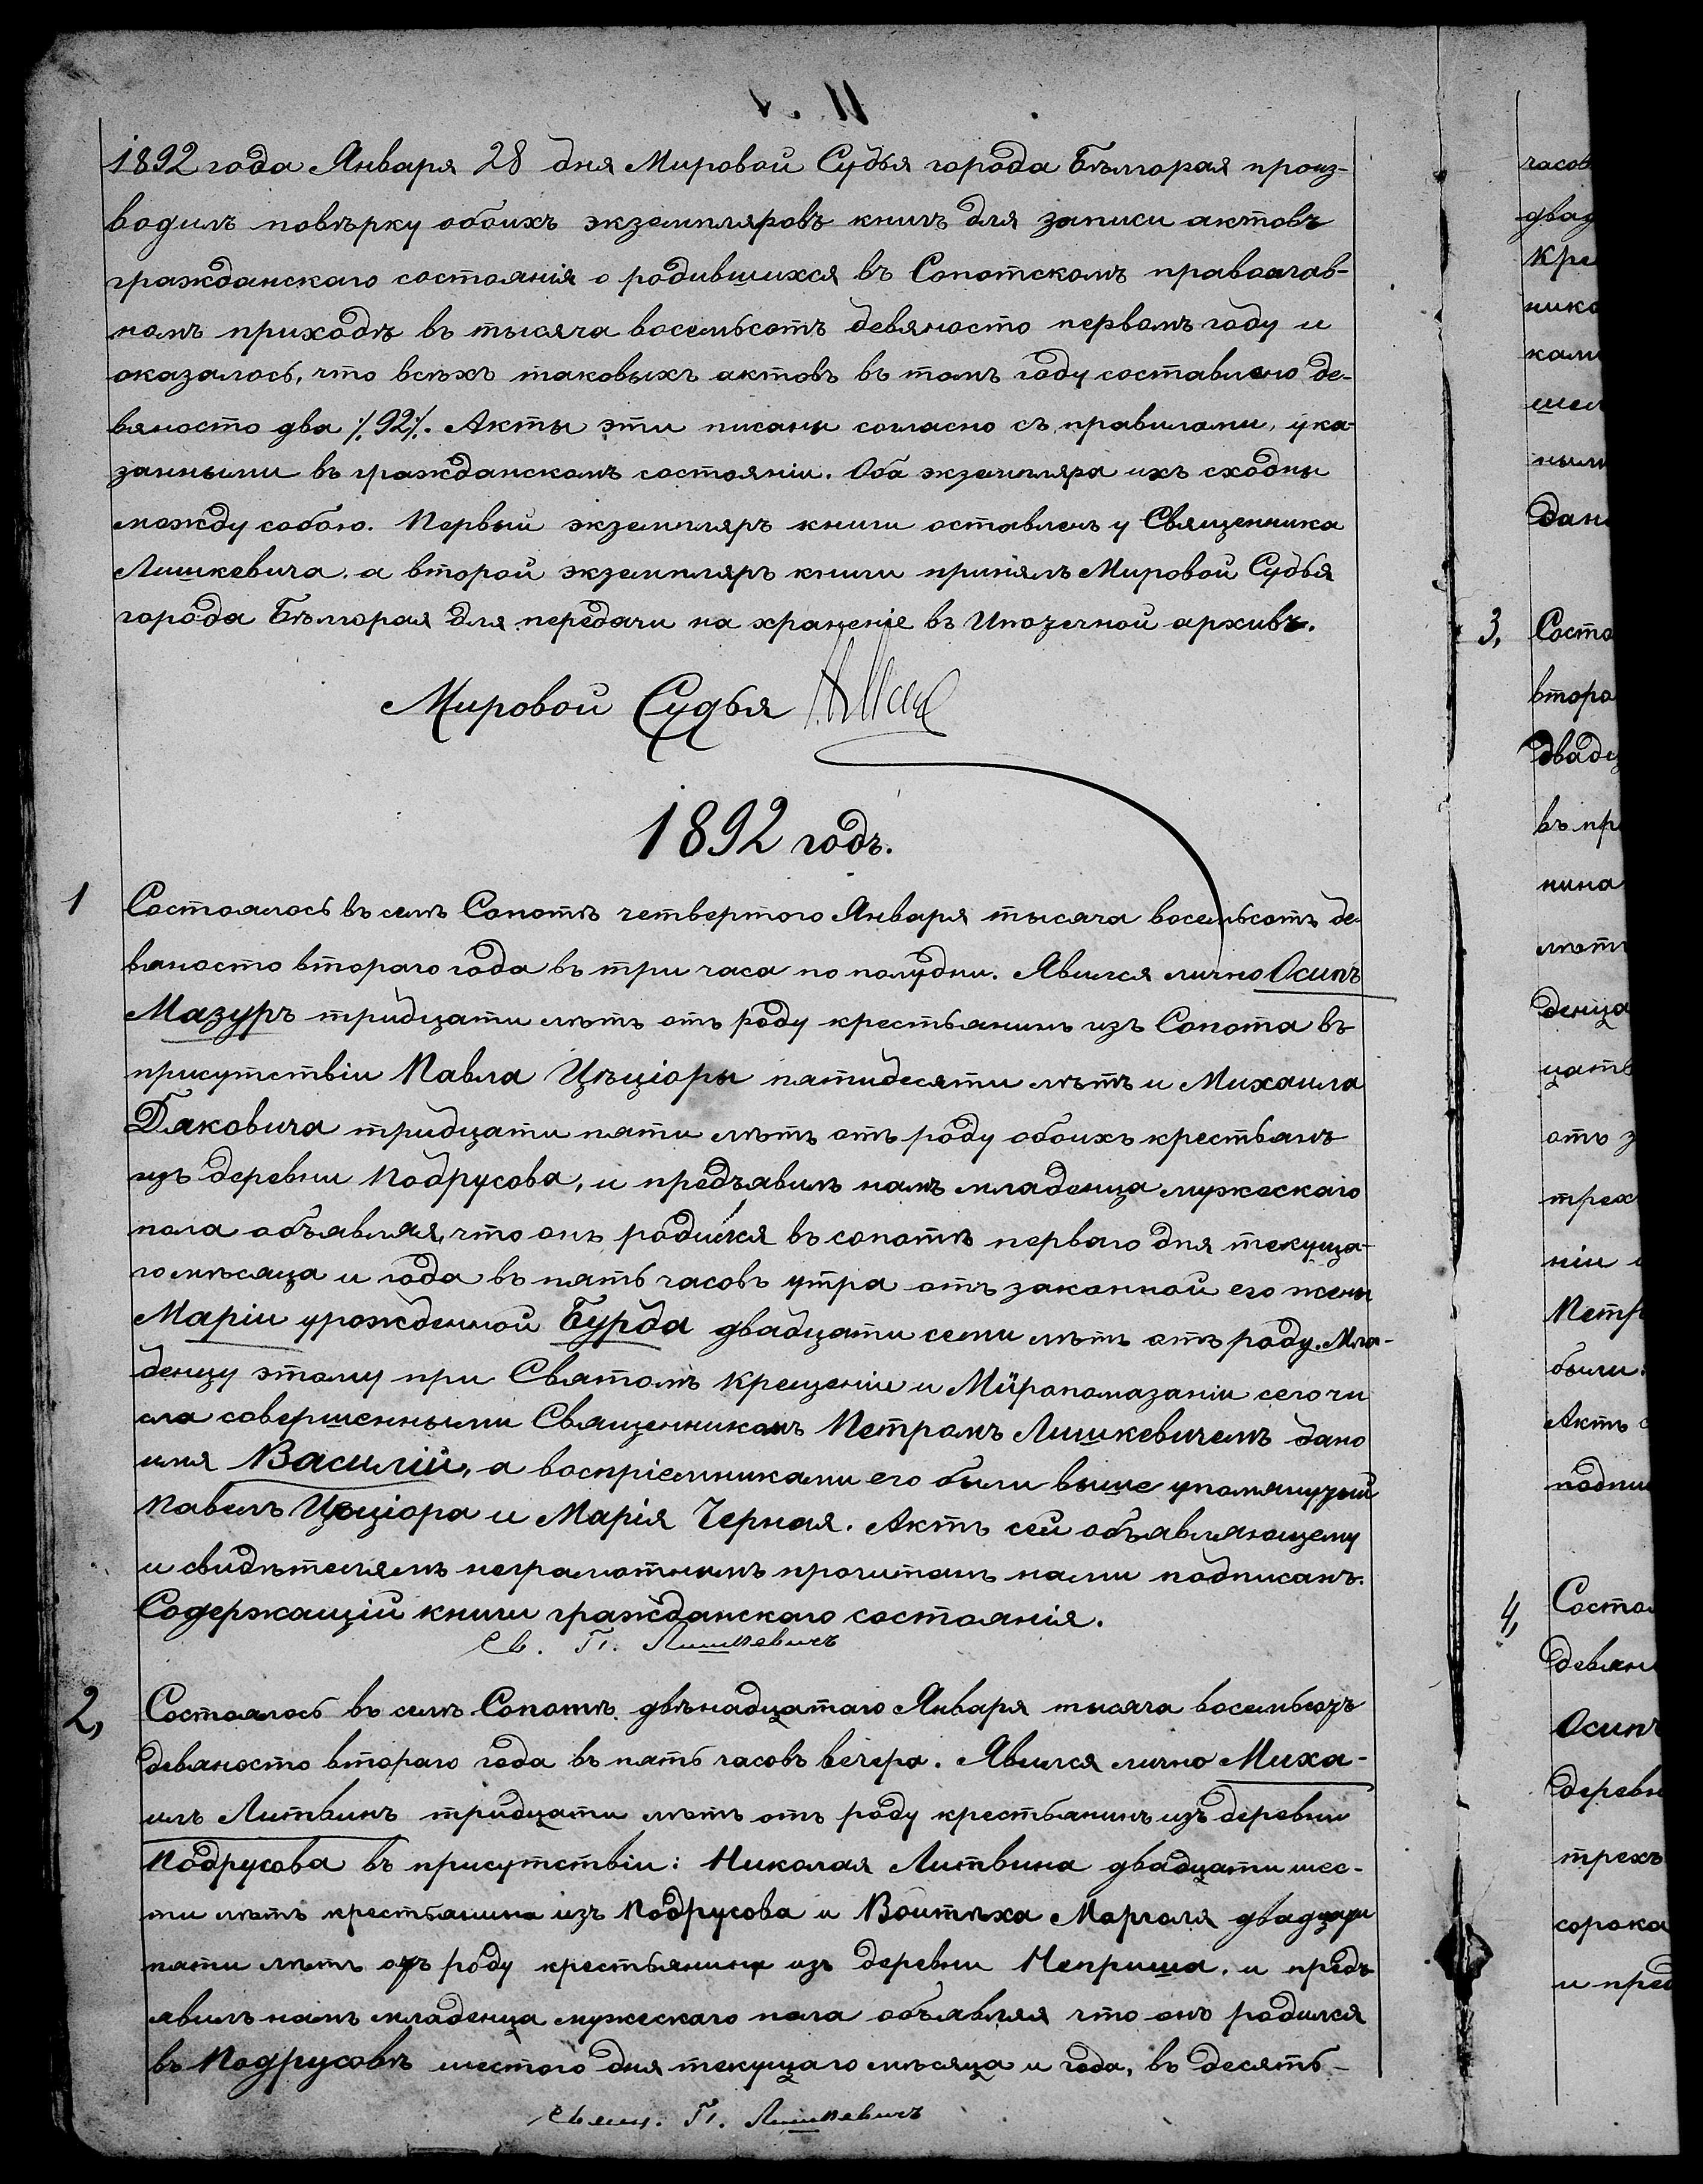 1892 года Января 28 дня Мировой Судья города Бѣлгорая произ-
водилъ повѣрку обоихъ экземпляровъ книгъ для записи актовъ
гражданскаго состоянія о родившихся въ Сопотскомъ православ-
номъ приходѣ въ тысяча восемьсотъ девяносто первомъ году и
оказалось, что всѣхъ таковыхъ актовъ въ томъ году составлено де-
вяносто два /92/. Акты эти писаны согласно съ правилами, ука-
занными въ гражданскомъ состояніи. Оба экземпляра ихъ сходны
между собою. Первый экземпляръ книги оставленъ у Священника
Лишкевича, а второй экземпляръ книги принялъ Мировой Судья
города Бѣлгорая для передачи на храненіе въ Ипотечной архивъ.
Мировой Судья
1892 годъ.
1 Состоялось въ селѣ Сопотѣ четвертого Января тысяча восемьсотъ де-
вяносто втораго года въ три часа по полудни. Явился лично Осипъ
Мазуръ тридцати лѣтъ отъ роду крестьянинъ изъ Сопота въ
присутствіи Павла Цѣціоры пятидесяти лѣтъ и Михаила
Дяковича тридцати пяти лѣтъ отъ роду обоихъ крестьянъ
изъ деревни Подрусова, и предъявилъ намъ младенца мужескаго
пола объявляя, что онъ родился въ сопотѣ перваго дня текуща-
го мѣсяца и года въ пять часовъ утра отъ законной его жены
Маріи урожденной Бурда двадцати семи лѣтъ отъ роду. Мла-
денцу этому при Святомъ Крещеніи и Мѵропомазаніи сего чи
сла совершенными Священникомъ Петромъ Лишкевичемъ дано
имя Василій, а воспріемниками его были выше упомянутый
Павелъ Цѣціора и Марія Черная. Актъ сей объявляющему
и свидѣтелямъ неграмотнымъ прочитанъ нами подписанъ.
Содержащій книги гражданскаго состоянія.
Св. П. Лишкевичъ
2, Состоялось въ селѣ Сопотѣ двѣнадцатаго Января тысяча восемьсотъ
девяносто втораго года въ пять часовъ вечера. Явился лично Миха-
илъ Литвинъ тридцати лѣтъ отъ роду крестьянинъ изъ деревни
Подрусова въ присутствіи: Николая Литвина двадцати шес-
ти лѣтъ крестьянина изъ Подрусова и Войтѣха Марголя двадцати
пяти лѣтъ отъ роду крестьянина изъ деревни Неприша, и предъ
явилъ намъ младенца мужескаго пола объявляя что онъ родился
въ Подрусовѣ шестого дня текущаго мѣсяца и года, въ десять-
Свящ. П. Лишкевичъ
часов
двад
Кре
нико
ками
шем
ным
дано
3, Состо
второ
двадц
въ пр
нина
лѣтъ
денца
цать
отъ з
трех
ніи
Петр
были
Актъ с
подпи
4, Состоя
девян
Осипъ
деревн
трехъ
сорока
и пред